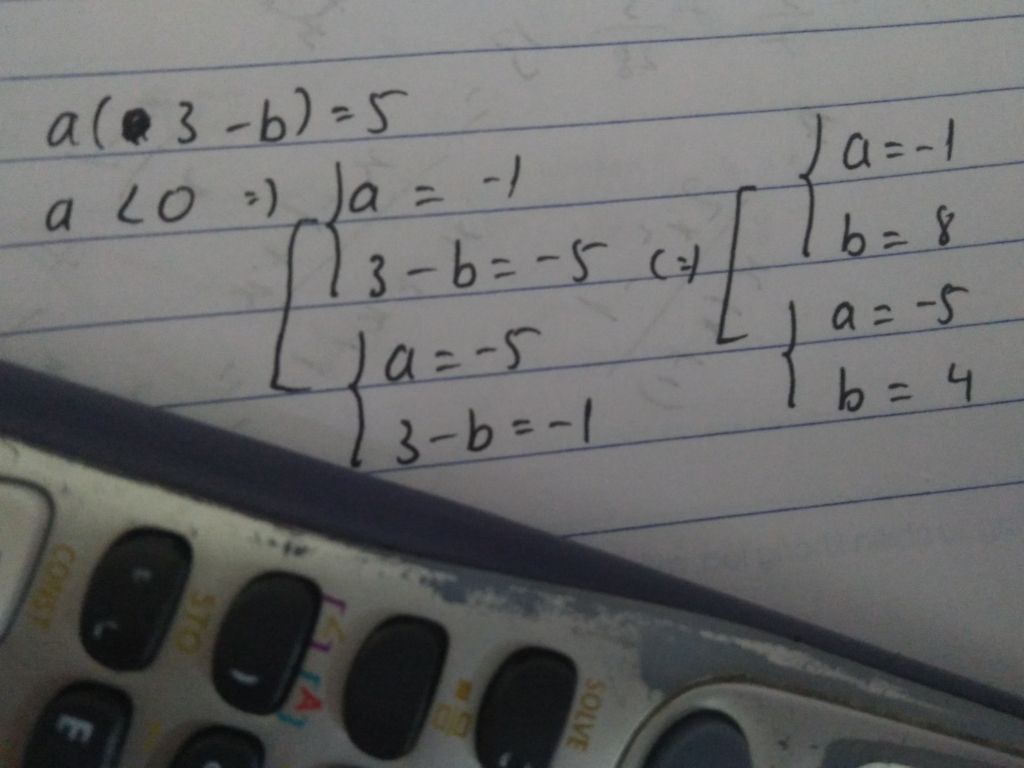 a(3-b)=5
a<0 => a = -1
3-b=-5 <=>
a=-5
3-b=-1
a=-1
b=8
a=-5
b=4
CONST
STO
[<]
[A]
=
SOLVE
E